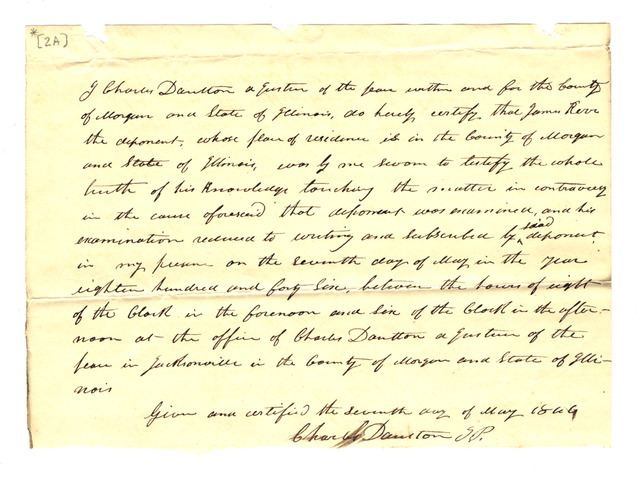 *[2A]
I Charles Dautton a Justice of the peace within and for the County
of Morgan and State of Illinois, do hereby certify that James
the deponent, whose place of residence is in the County of Morgan
and State of Illinois, was by me sworn to testify the whole
truth of his Knowledge touching the matter in controversy
in the cause aforesaid that deponent was examined, and his
examination reduced to writing and subscribed by said deponent
in my presence on the seventh day of May in the year
eighteen hundred and forty six, between the hours of eight
of the Clock in the forenoon and Six of the Clock in the after-
noon at the office of Charles Dautton a Justice of the
peace in Jacksonville in the County of Morgan and State of Illi-
nois
Given and certified the seventh day of May 1846
Charles Dautton J.P.